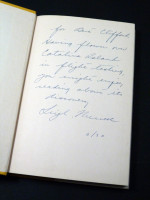 for Ben Clifford
Having flown over
Catalina Island
in flight testing
you might enjoy
reading about its
discovery
Leigh